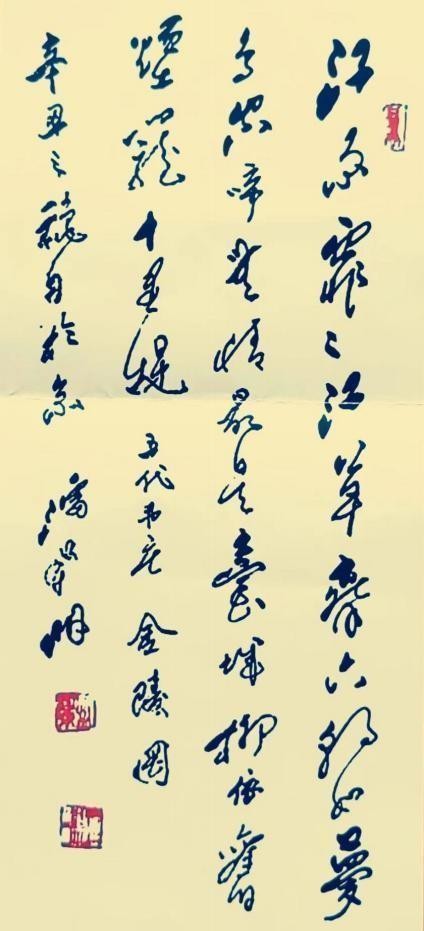 江雨霏々江草齊六朝如夢
鳥空啼無情最是臺城柳依舊
煙籠十里堤 五代韦庄 金陵圖
辛丑之穐月於京